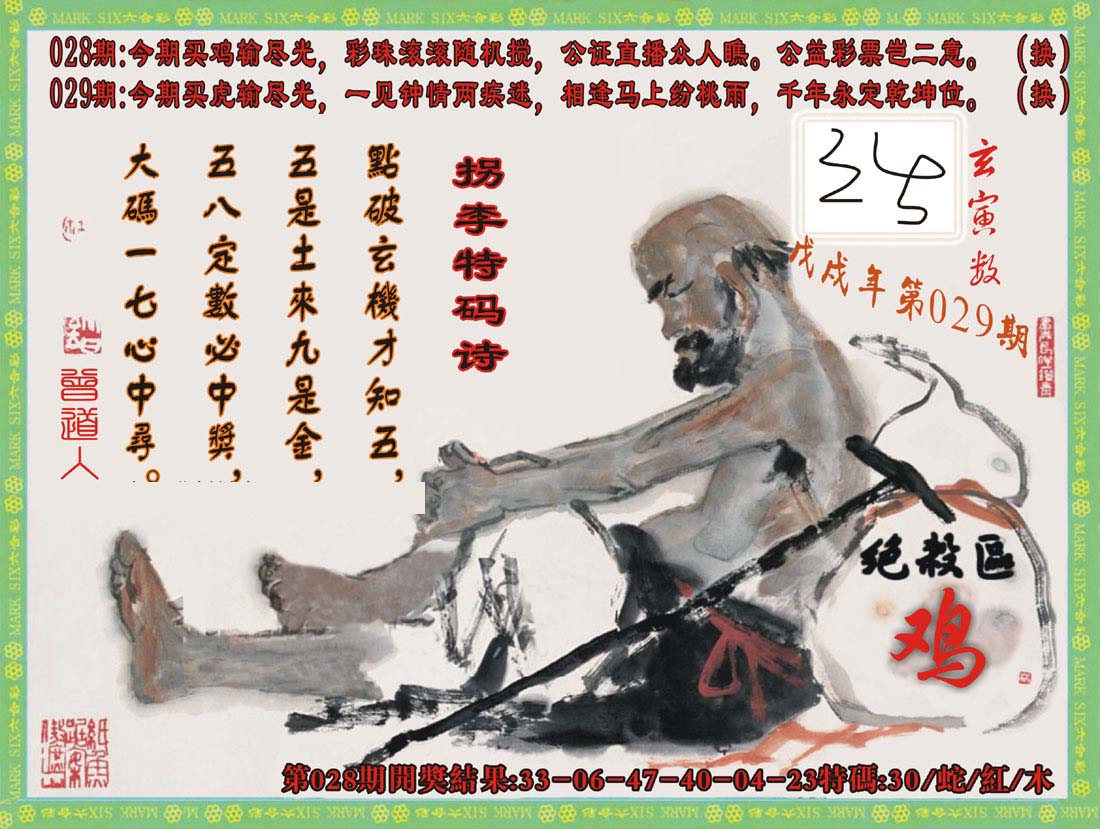 MARK SIX六合彩 MARK SIX六合彩 MARK SIX六合彩 MARK SIX六合彩 MARK SIX六合彩 MARK SIX六合彩
028期:今期买鸡输尽光，彩珠滚滚随机搅，公证直播众人瞧。公益彩票岂二意。（换）
029期:今期买虎输尽光，一见钟情两疾迷，相逢马上纷桃雨，千年永定乾坤位。（换）
玄寅数
戊戌年第029期
拐李特码诗
點破玄機才知五，
五是土來九是金，
五八定數必中獎，
大碼一七心中尋。
曾道人
绝殺區
鸡
第028期開獎結果:33-06-47-40-04-23特碼:30/蛇/紅/木